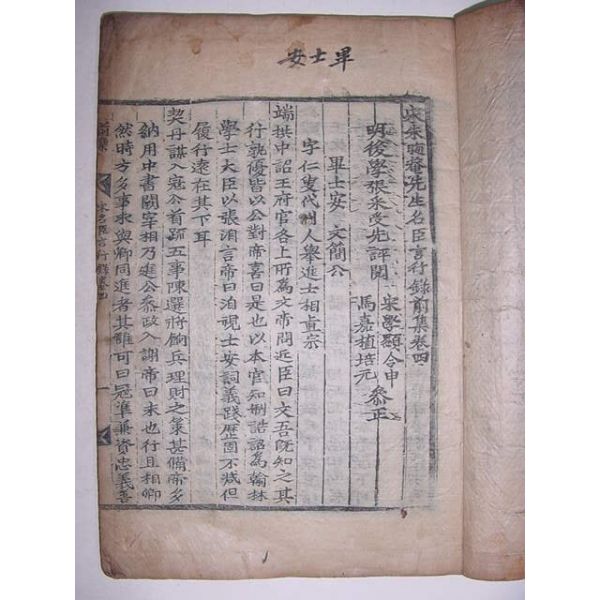 畢士安
宋朱晦菴先生名臣言行錄前集卷四
明後學張采受先評閱
宋學顯令申
馬嘉植培元
叅正
畢士安 文簡公
字仁叟代州人舉進士相真宗
端拱中詔王府官各上所為文帝問近臣曰文吾旣知之其
行孰優皆以公對帝喜曰是也以本官知制誥詔為翰林
學士大臣以張洎言帝曰洎視士安詞義踐歷固不减但
履行遠在其下耳
契丹謀入寇公首疏五事陳選將餉兵理財之策甚備帝多
納用中書闕宰相乃進公叅政入謝帝曰未也行且相卿
然時方多事求與卿同進者其誰可曰寇準兼資忠義善
前集 宋名臣言行錄卷四 一